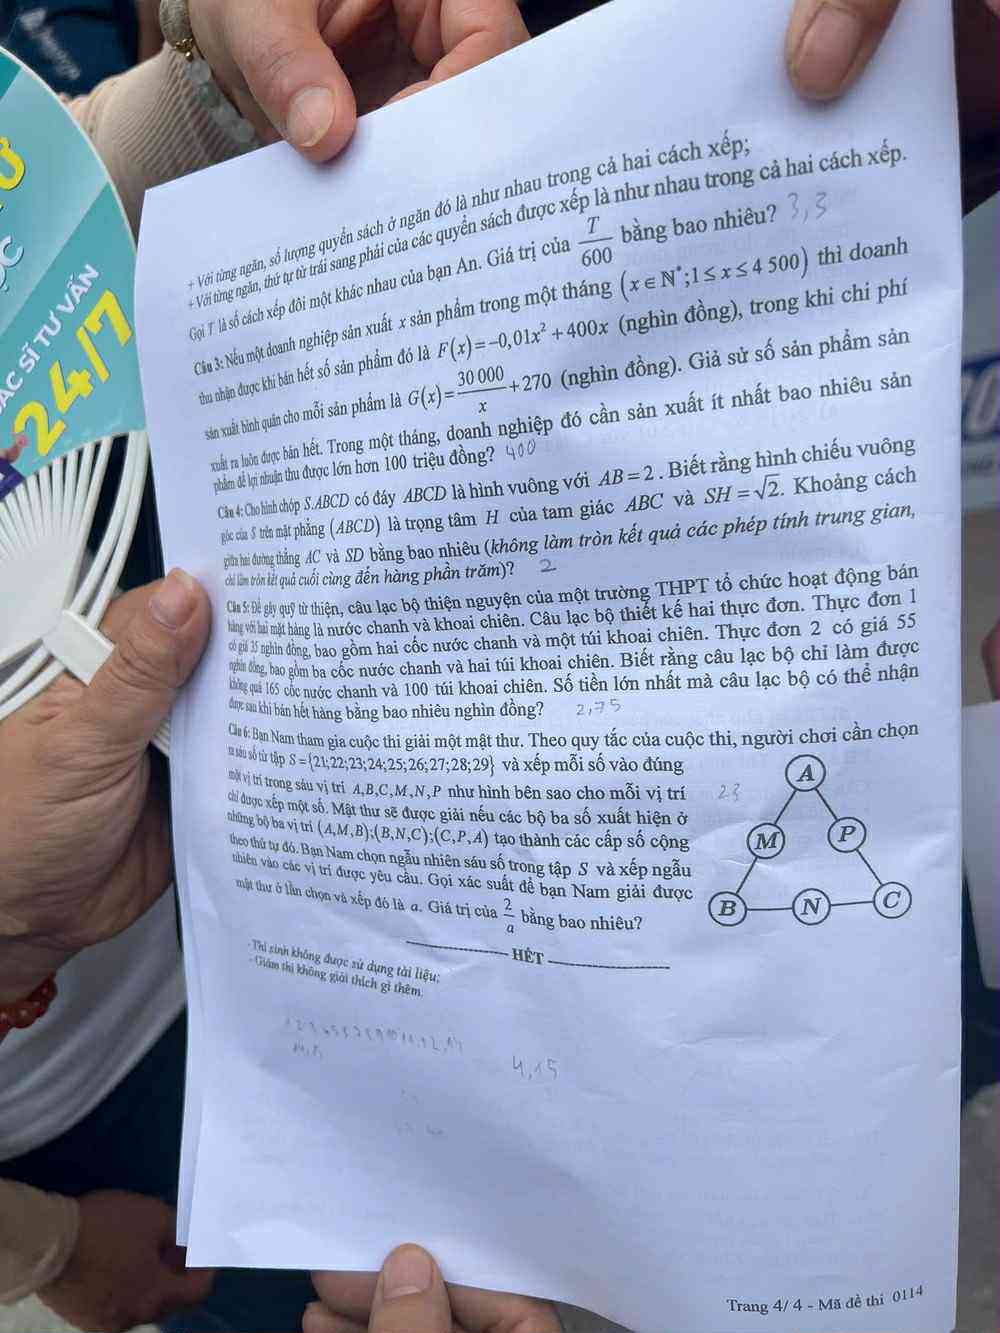 + Với từng ngăn, số lượng quyển sách ở ngăn đó là như nhau trong cả hai cách xếp;
+ Với từng ngăn, thứ tự từ trái sang phải của các quyển sách được xếp là như nhau trong cả hai cách xếp.
Gọi T là số cách xếp đôi một khác nhau của bạn An. Giá trị của T/600 bằng bao nhiêu? 3,3
Câu 3: Nếu một doanh nghiệp sản xuất x sản phẩm trong một tháng (x ∈ N*; 1 ≤ x ≤ 4 500) thì doanh
thu nhận được khi bán hết số sản phẩm đó là F(x) = −0,01x² + 400x (nghìn đồng), trong khi chi phí
sản xuất bình quân cho mỗi sản phẩm là G(x) = 30 000/x + 270 (nghìn đồng). Giả sử số sản phẩm sản
xuất ra luôn được bán hết. Trong một tháng, doanh nghiệp đó cần sản xuất ít nhất bao nhiêu sản
phẩm để lợi nhuận thu được lớn hơn 100 triệu đồng? 400
Câu 4: Cho hình chóp S.ABCD có đáy ABCD là hình vuông với AB = 2. Biết rằng hình chiếu vuông
góc của S trên mặt phẳng (ABCD) là trọng tâm H của tam giác ABC và SH = √2. Khoảng cách
giữa hai đường thẳng AC và SD bằng bao nhiêu (không làm tròn kết quả các phép tính trung gian,
chỉ làm tròn kết quả cuối cùng đến hàng phần trăm)? 2
Câu 5: Để gây quỹ từ thiện, câu lạc bộ thiện nguyện của một trường THPT tổ chức hoạt động bán
hàng với hai mặt hàng là nước chanh và khoai chiên. Câu lạc bộ thiết kế hai thực đơn. Thực đơn 1
có giá 35 nghìn đồng, bao gồm hai cốc nước chanh và một túi khoai chiên. Thực đơn 2 có giá 55
nghìn đồng, bao gồm ba cốc nước chanh và hai túi khoai chiên. Biết rằng câu lạc bộ chỉ làm được
không quá 165 cốc nước chanh và 100 túi khoai chiên. Số tiền lớn nhất mà câu lạc bộ có thể nhận
được sau khi bán hết hàng bằng bao nhiêu nghìn đồng? 2,75
Câu 6: Bạn Nam tham gia cuộc thi giải một mật thư. Theo quy tắc của cuộc thi, người chơi cần chọn
ra sáu số từ tập S = {21;22;23;24;25;26;27;28;29} và xếp mỗi số vào đúng
một vị trí trong sáu vị trí A,B,C,M,N,P như hình bên sao cho mỗi vị trí 23
chỉ được xếp một số. Mật thư sẽ được giải nếu các bộ ba số xuất hiện ở
những bộ ba vị trí (A,M,B);(B,N,C);(C,P,A) tạo thành các cấp số cộng
theo thứ tự đó. Bạn Nam chọn ngẫu nhiên sáu số trong tập S và xếp ngẫu
nhiên vào các vị trí được yêu cầu. Gọi xác suất để bạn Nam giải được
mật thư ở lần chọn và xếp đó là a. Giá trị của 2/a bằng bao nhiêu?
A
M P
B N C
HẾT
- Thí sinh không được sử dụng tài liệu;
- Giám thị không giải thích gì thêm.
4,15
Trang 4/ 4 - Mã đề thi 0114
BÁC SĨ TƯ VẤN
24/7